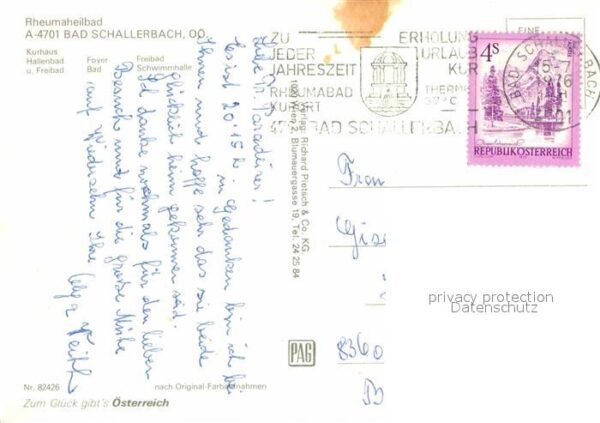 Rheumaheilbad
A-4701 BAD SCHALLERBACH, OÖ.
Kurhaus
Hallenbad
u. Freibad
Foyer
Bad
Freibad
Schwimmhalle
ZU
JEDER
JAHRESZEIT
RHEUMABAD
KURORT
BAD SCHALLERBACH
ERHOLUNG
URLAUB
KUR
THERME
37°C
EINE
BAD SCHALLERBACH
1976
4S
REPUBLIK ÖSTERREICH
Liebe
Es ist 20.15 h in Gedanken bin ich bei
Ihnen und hoffe sehr das sie beide
glücklich heim gekommen sind.
Ich danke nochmals für den lieben
Besuch und für die große Mühe
auf Wiedersehn Ihre
Verlag: Richard Pietsch & Co. KG.
1020 Wien 2, Blumauergasse 19, Tel. 24 25 84
Frau
8360
PAG
privacy protection
Datenschutz
Nr. 82426
nach Original-Farbaufnahmen
Zum Glück gibt's Österreich